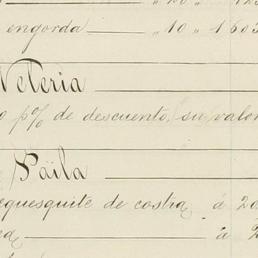 engorda — " 10 " 1603
Veleria
o p% de descuento, su valor
Paila
equesquite de costra á 20
á 2